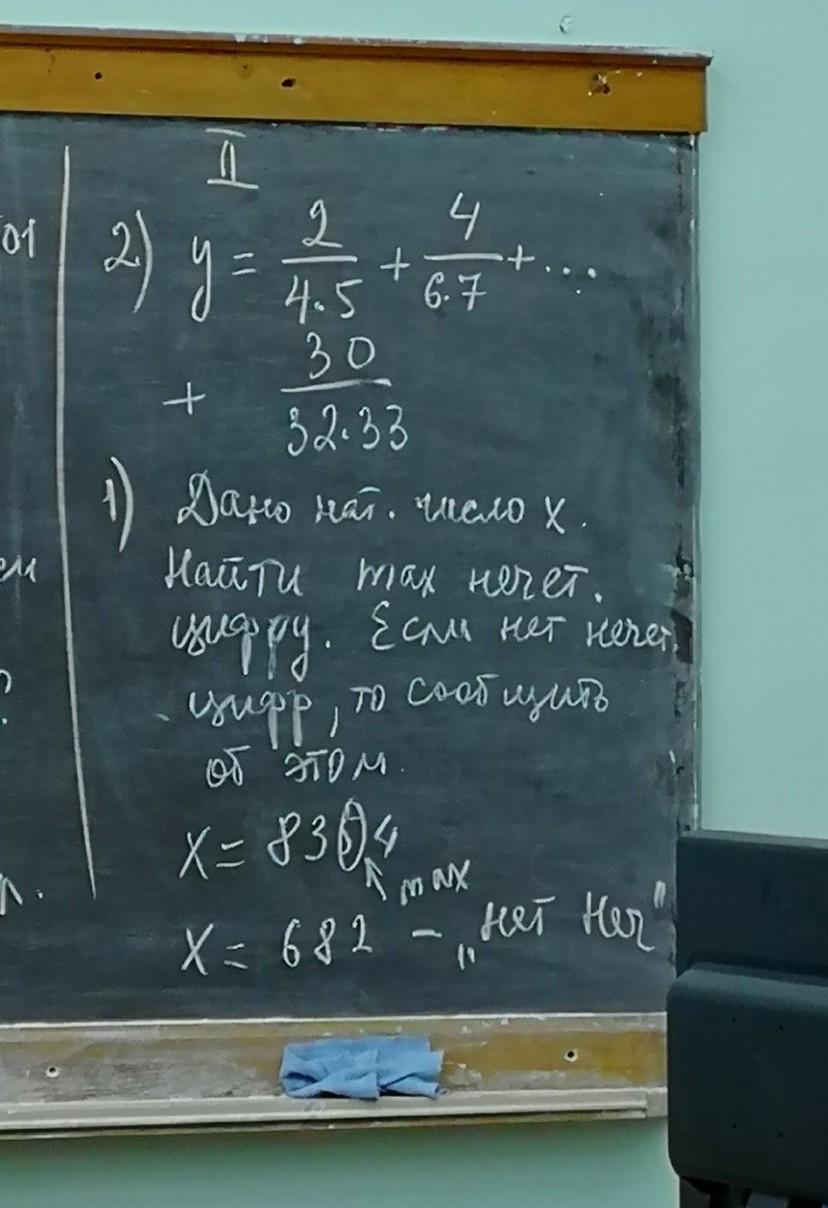 II
2) y = 2/(4·5) + 4/(6·7) + ...
+ 30/(32·33)
1) Дано нат. число x.
Найти max нечет.
цифру. Если нет нечет.
цифр, то сообщить
об этом.
x = 8354
max
x = 682 – „нет неч"